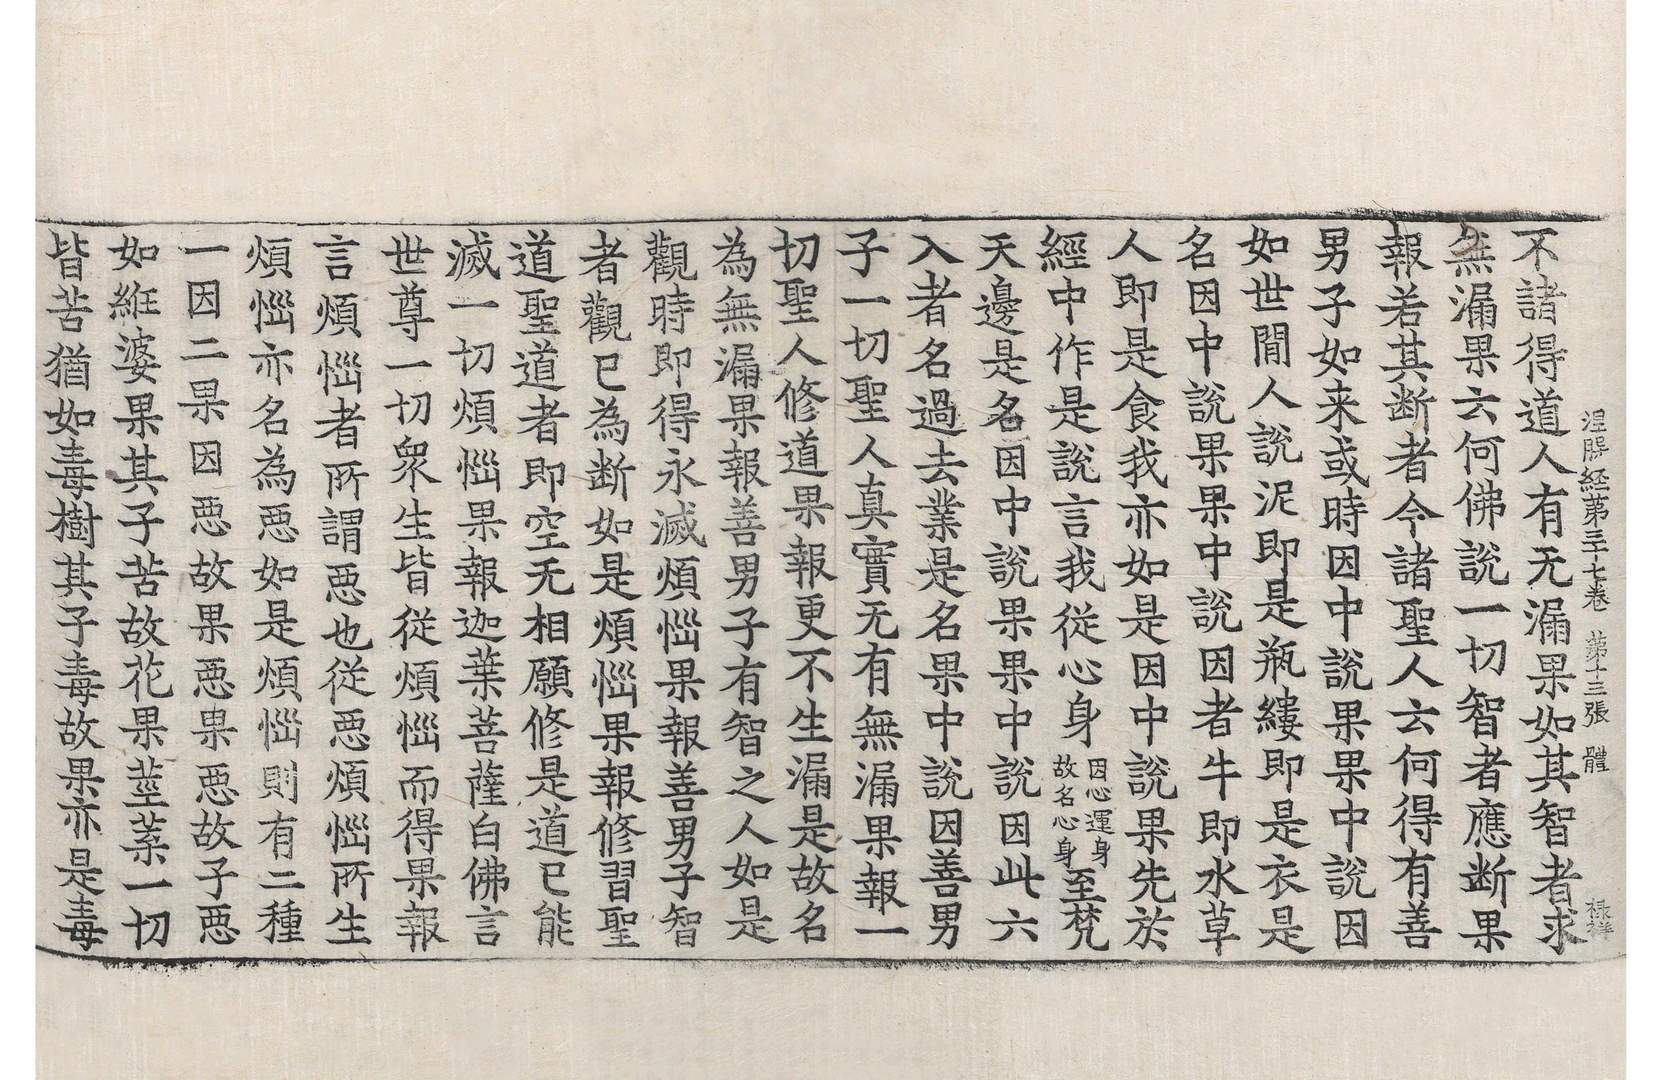 涅槃経第三十七巻 第十三張 體 禄祥
不諸得道人有无漏果如其智者求
無漏果云何佛說一切智者應断果
報若其断者今諸聖人云何得有善
男子如来或時因中說果果中說因
如世間人說泥即是瓶縷即是衣是
名因中說果果中說因者牛即水草
人即是食我亦如是因中說果先於
經中作是說言我従心身因心運身故名心身至梵
天邊是名因中說果果中說因此六
入者名過去業是名果中說因善男
子一切聖人真實无有無漏果報一
切聖人修道果報更不生漏是故名
為無漏果報善男子有智之人如是
觀時即得永滅煩惱果報善男子智
者觀已為断如是煩惱果報修習聖
道聖道者即空无相願修是道已能
滅一切煩惱果報迦葉菩薩白佛言
世尊一切衆生皆従煩惱而得果報
言煩惱者所謂惡也従惡煩惱所生
煩惱亦名為惡如是煩惱則有二種
一因二果因惡故果惡果惡故子惡
如絍婆果其子苦故花果莖葉一切
皆苦猶如毒樹其子毒故果亦是毒